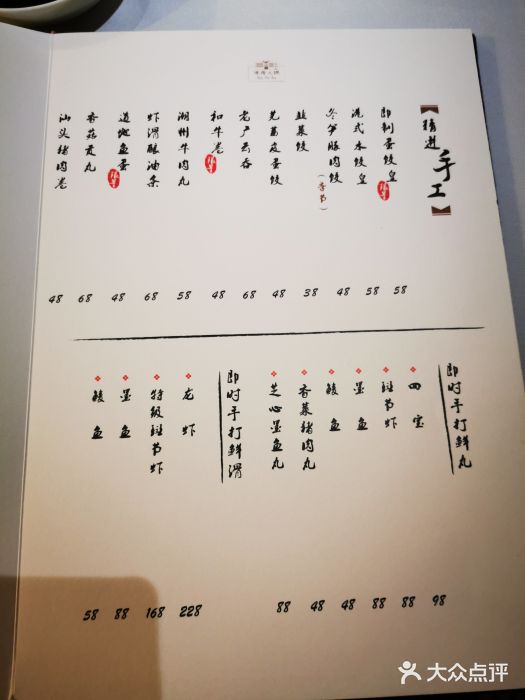 【精进手工】
即制蛋饺皇 58
港式水饺皇 58
冬笋豚肉饺（季节） 48
韭菜饺 38
芫茜皮蛋饺 48
老广云吞 68
和牛卷 48
潮州牛肉丸 58
虾滑酿油条 68
道地鱼蛋 48
香菇贡丸 68
汕头猪肉卷 48
即时手打鲜丸
四宝 98
斑节虾 88
墨鱼 88
鲮鱼 48
香菜猪肉丸 48
芝心墨鱼丸 88
即时手打鲜滑
龙虾 228
特级斑节虾 168
墨鱼 88
鲮鱼 58
大众点评